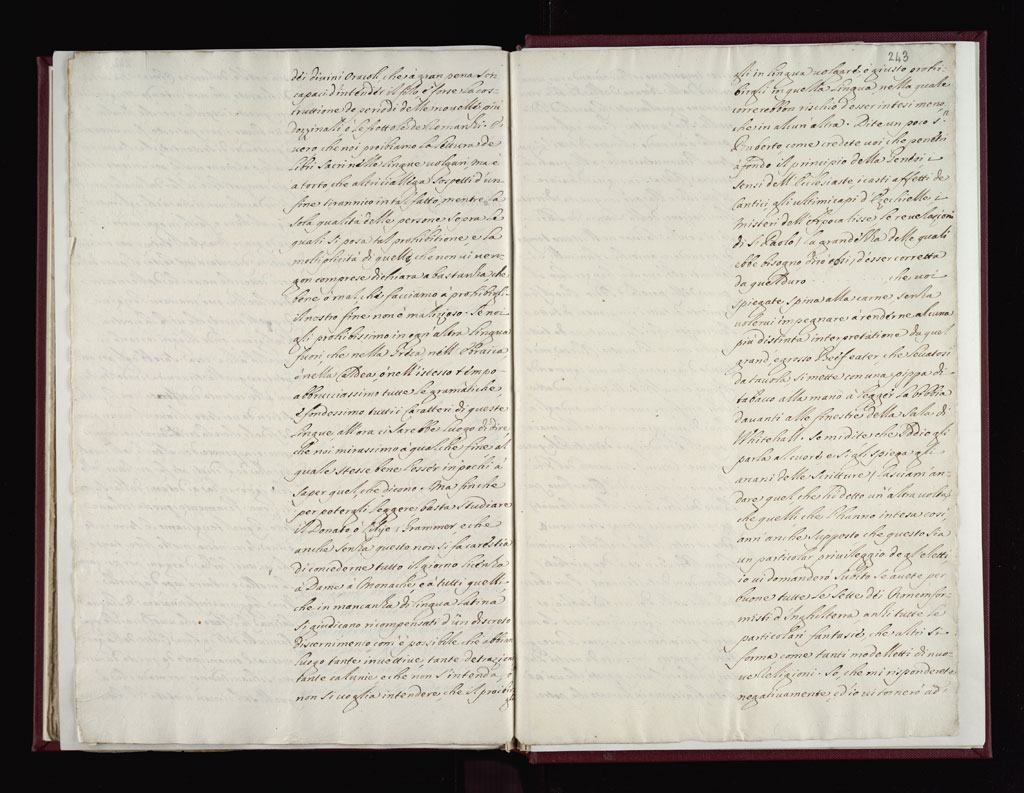 dei divini Oracoli, che à gran pena son
capaci d'intender il filo, e forse la cos-
truttione de periodi delle novelle più
dozzinali, e le frottole de Romanzi. È
vero che noi proibiamo la lettura de
libri Sacri nelle lingue volgari, ma è
a torto che altri ci allega sospetti d'un
fine tirannico in tal fatto, mentre la
sola qualità delle persone sopra la
quali si posa tal prohibitione, e la
moltiplicità di quelli, che non vi ven-
gon comprese dichiara abastanza che
bene, ò mal, che facciamo à prohibirgli
il nostro fine non è malizioso. Se noi
gli prohibissimo in ogni altra lingua
fuori che nella Greca, nell'Ebraica
ò nella Caldea, ò nell'istesso tempo
abbrucciassimo tutte le gramatiche,
e fondessimo tutti i caratteri di queste
lingue, allora ci sarebbe luogo di dire
che noi mirassimo à qualche fine al
quale stesse bene l'esser in pochi à
saper quel, che dicono. Ma finche
per potergli leggere basta studiare
il Donato, ò Lilye Grammer, e che
anche senza questo non si fa carestia
di concederne tutto il giorno licenza
à Dame, à Monache, e à tutti quelli,
che in mancanza di lingua latina
si giudicano ricompensati d'un discreto
discernimento, com'è possibile che abbian
luogo tante invettive, tante detrazioni
tante calunie, e che non s'intenda, ò
non si voglia intendere, che si proibir
243
gli in lingua volgare è giusto prohi-
birgli in quella lingua nella quale
correrebbon rischio d'esser intesi meno,
che in alcun'altra. Dite un poco S.r
Ruberto come credete voi che penetri
à fondo il principio della Genesi i
sensi dell'Ecclesiaste, i casti affetti de
Cantici, gli ultimi capi d'Ezechielle i
misteri dell'Apocalisse, le revelazioni
di S. Paolo, la grandezza delle quali
ebbe bisogno, dirò così, d'esser corretta
da quel duro che voi
spiegate spina alla carne senza
volervi impegnare à renderne alcuna
più distinta interpretatione da quel
grand, e grosso Beefeater che levatosi
da tavola si mette con una pippa di
tabacco alla mano à legger la bibbia
davanti alle finestre della Sala di
Whitehall. Se mi dite che Iddio gli
parla al cuore, e si gli spiega gli
arcani delle Scritture, lasciam'an-
dare quel, che hò detto un'altra volta
che quelli che l'hanno intesa così
ann' anche supposto che questo sia
un particolar privileggio degl'eletti,
io vi domanderò subito se avete per
buone tutte le Sette dei Nonconfor-
misti d'Inghilterra, anzi tutte le
particolari fantasie, che altri si
forma come tanti modelletti di nuo-
ve Religioni. So, che mi risponderete
negativamente, ed io vi tornerò à d